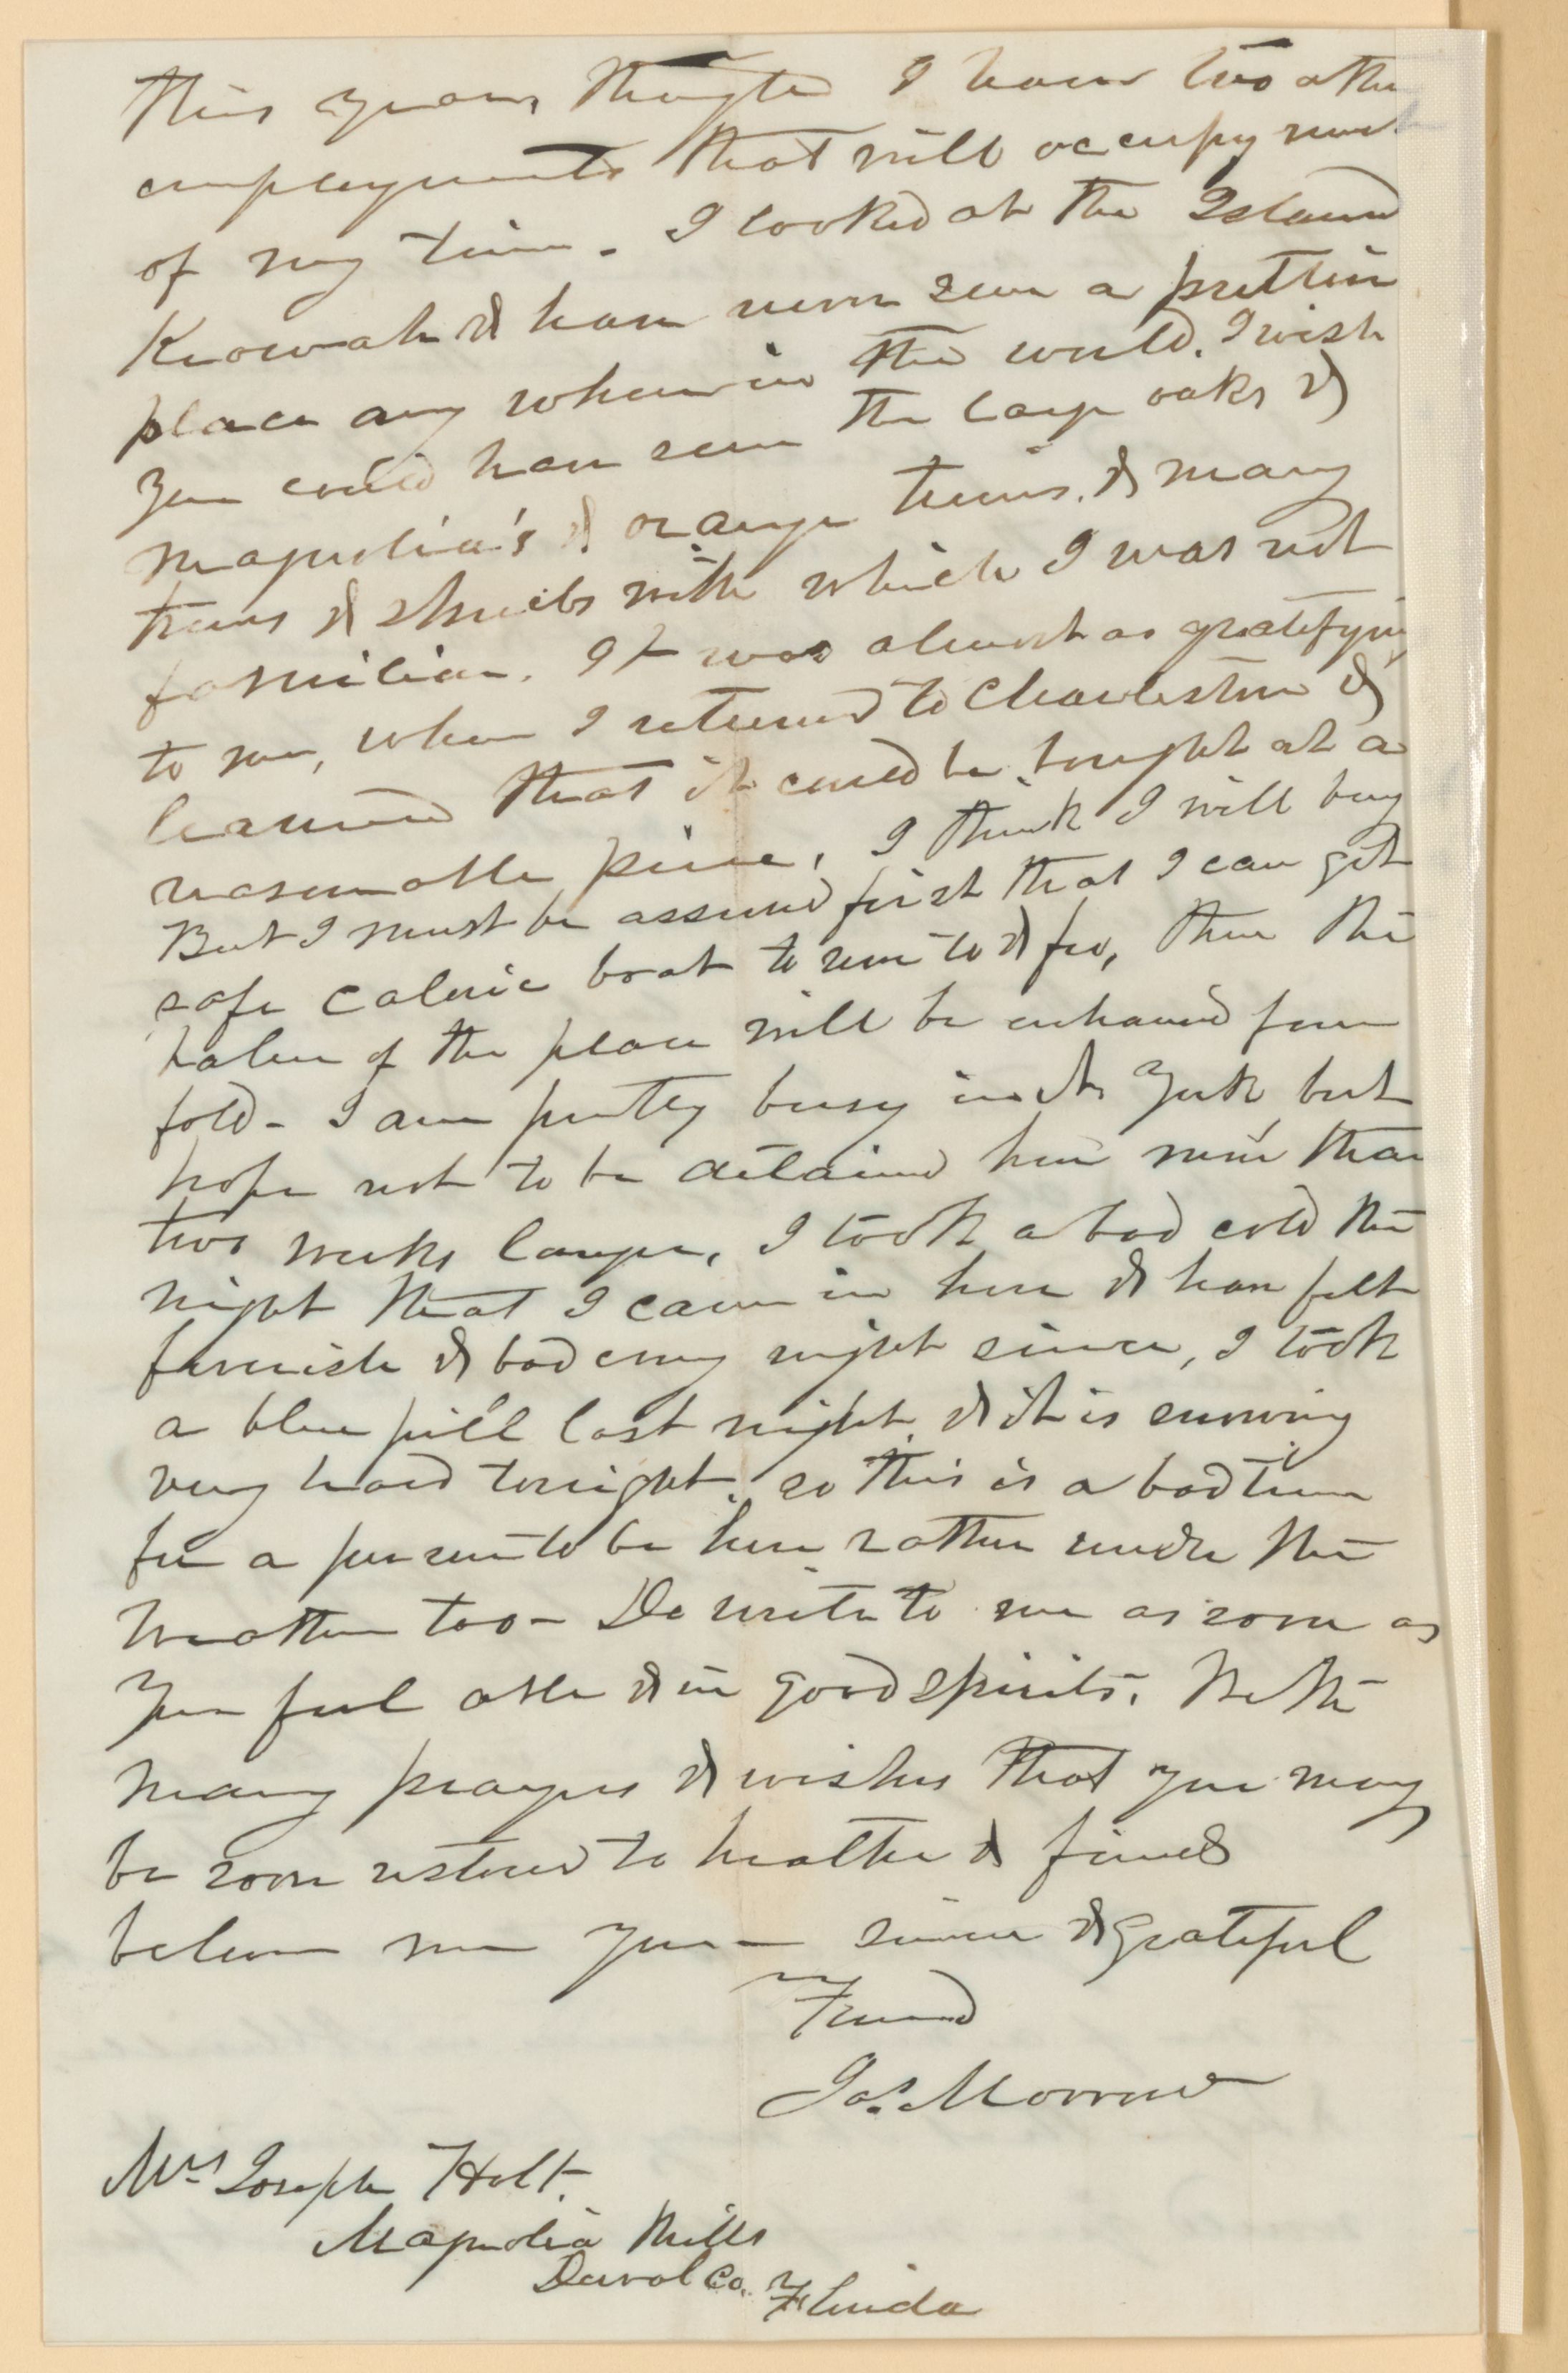 this year, though I have two other
employments that will occupy most
of my time. I looked at the Island
Keowah & have never seen a prettier
place any where in the world. I wish
you could have seen the large oaks &
magnolia's & orange trees. & many
trees & shrubs with which I was not
familiar. It was almost as gratifying
to me, when I returned to Charleston &
learned that it could be bought at a
reasonable price, I think I will buy
But I must be assured first that I can get
safe caloric boat to run to & fro, then the
value of the place will be enhanced four
fold - I am pretty busy in N. York but
hope not to be detained here more than
two weeks longer, I took a bad cold the
night that I came in here & have felt
feverish & bad every night since, I took
a blue pill last night, & it is snowing
very hard tonight, so this is a bad time
for a person to be here rather under the
weather too - Do write to me as soon as
you feel able & in good spirits. With
many prayers & wishes that you may
be soon restored to health & friends
believe me your sincere & grateful
Friend
Jas. Morrow
Mrs Joseph Holt.
Magnolia Mills
Duval Co. Florida